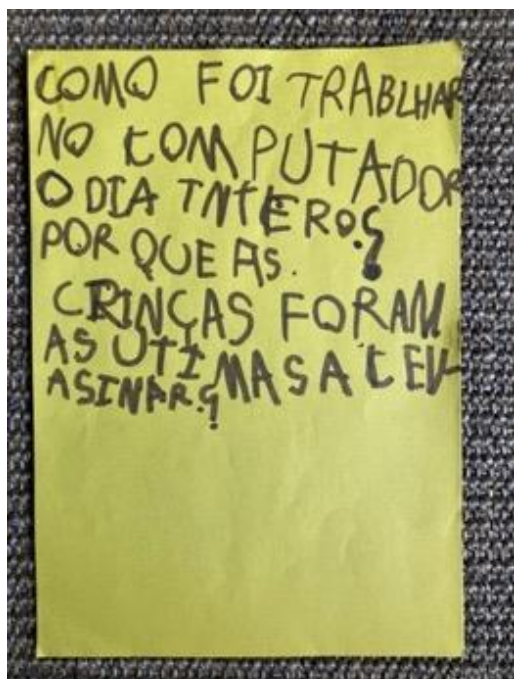 COMO FOI TRABLHAR
NO COMPUTADOR
O DIA INTEROS?
POR QUE AS.
CRINÇAS FORAM
AS UTIMAS A
ASINAR?